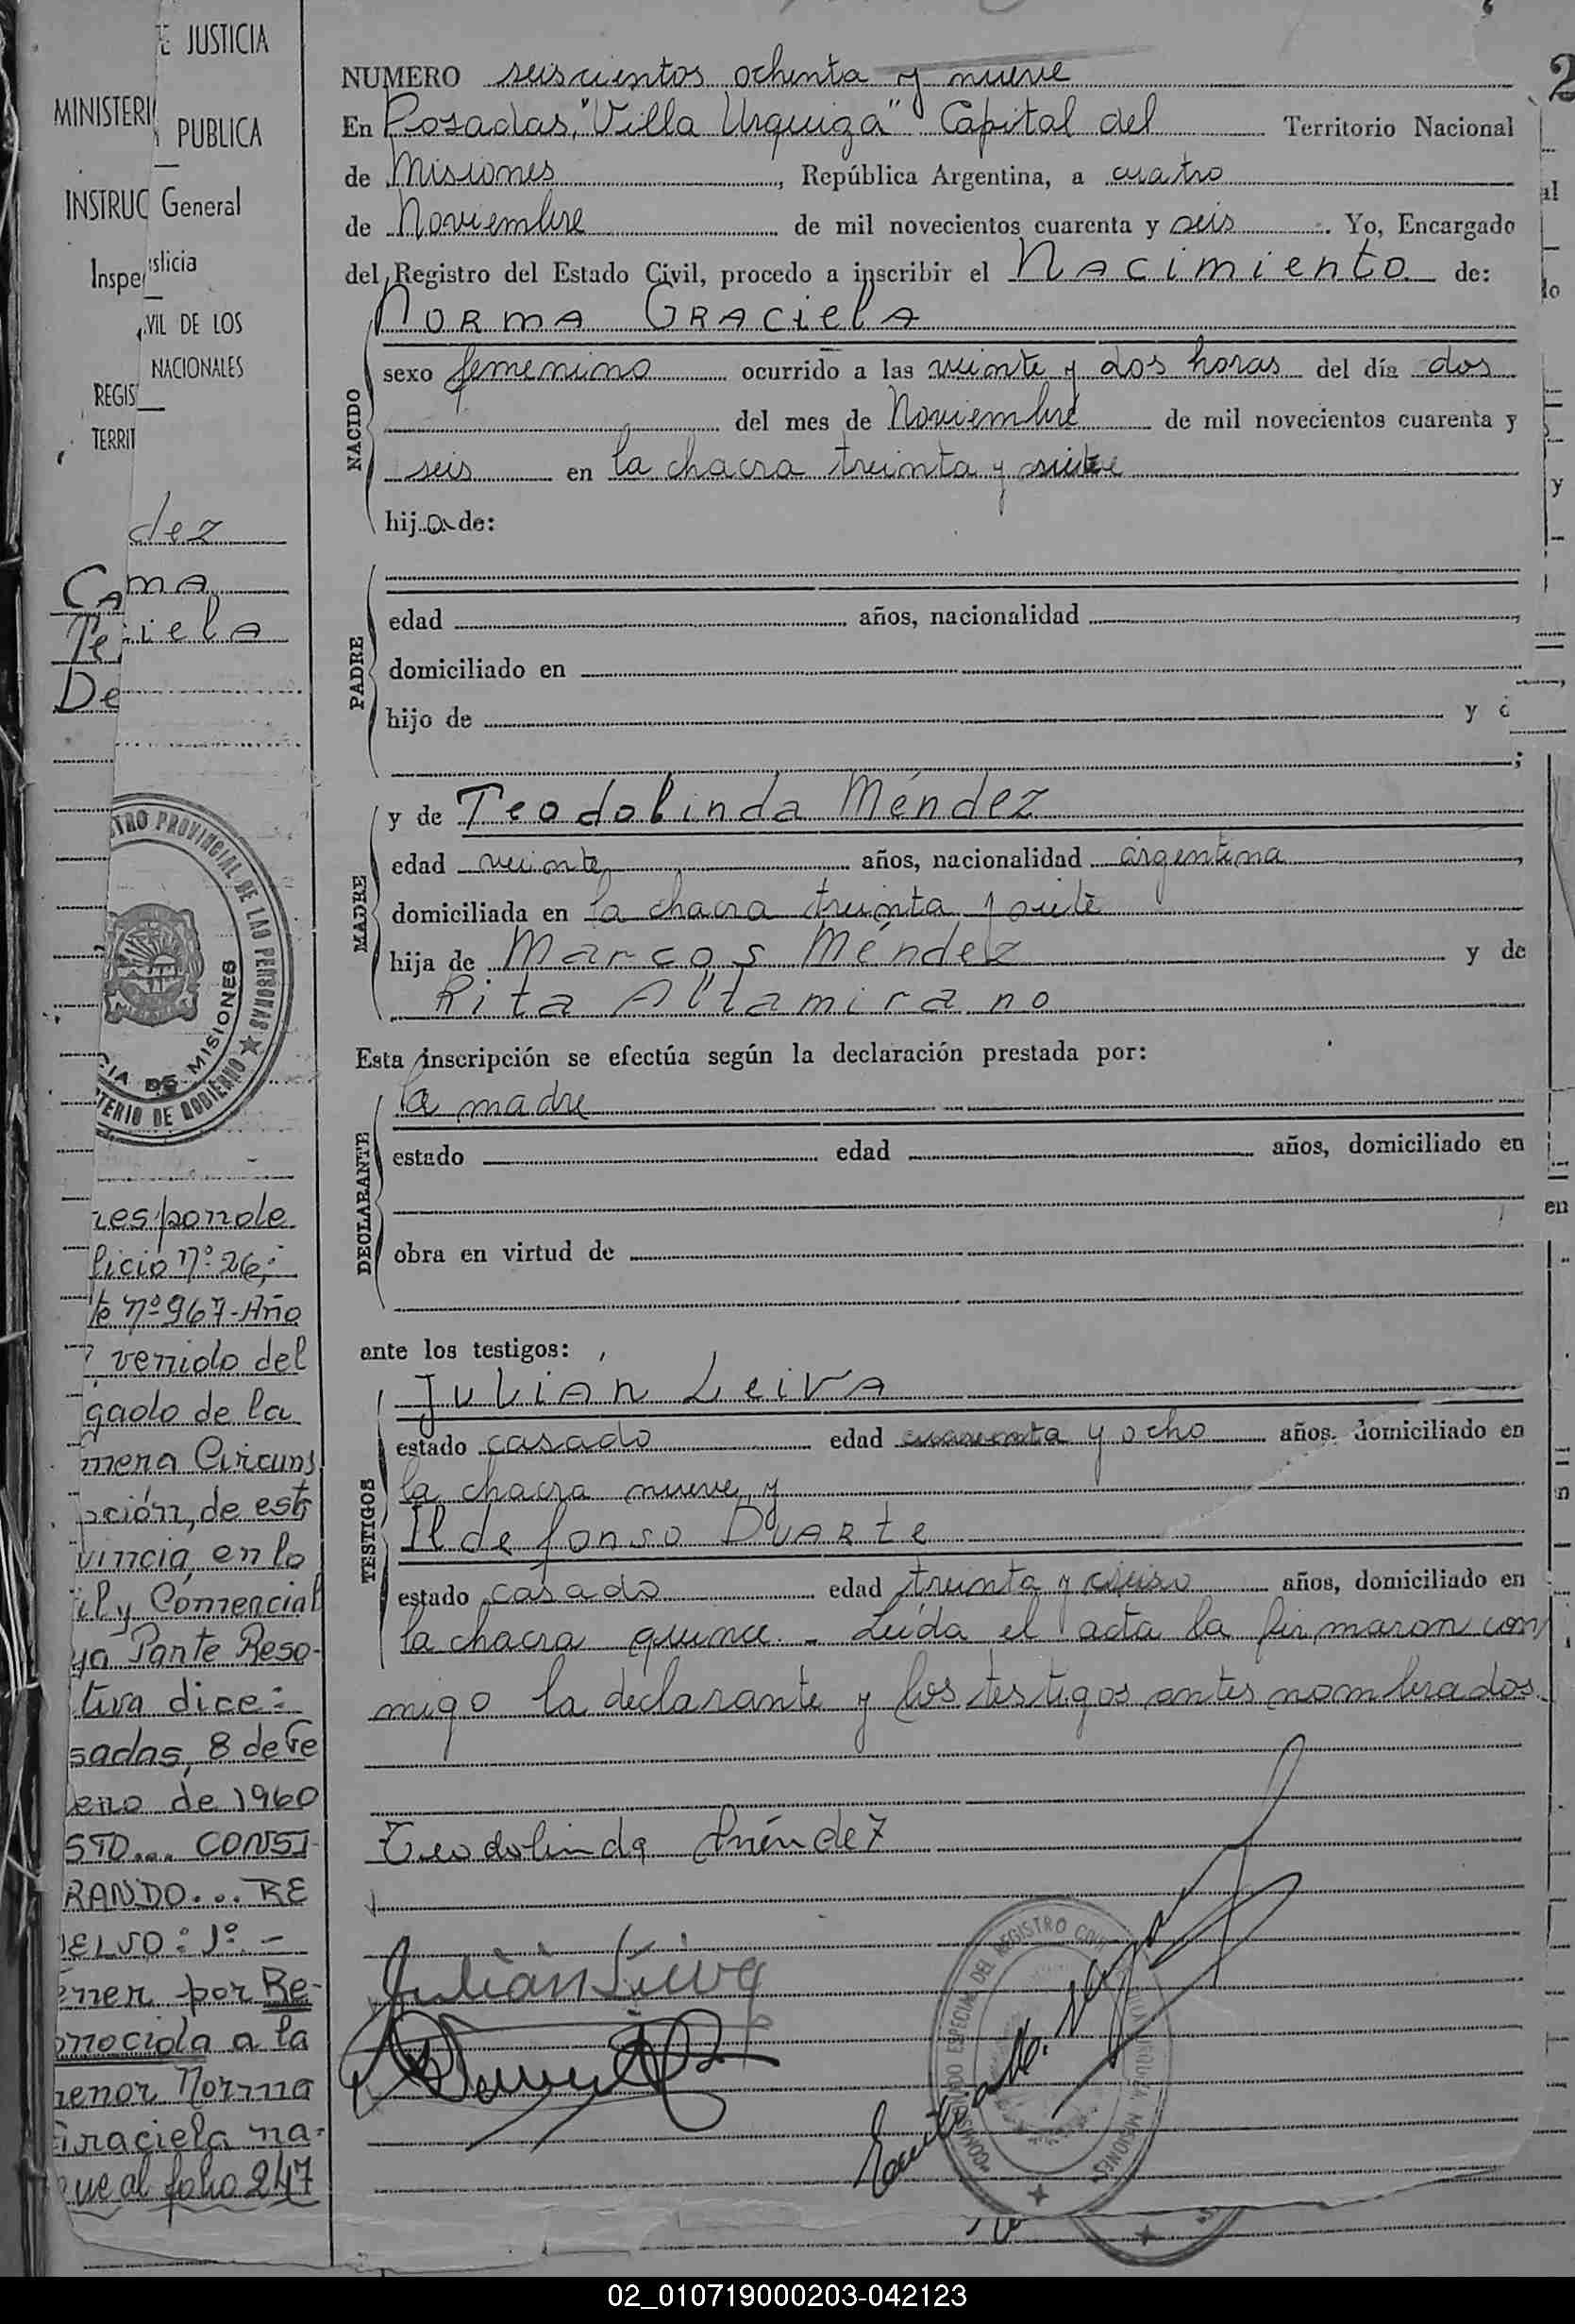 E JUSTICIA
MINISTERI
PUBLICA
INSTRUC General
Inspe
sticia
VIL DE LOS
NACIONALES
REGIS
TERRIT
dez
CA ma
Te iela
De
TRO PROVINCIAL DE LAS PERSONAS
CIA DE MISIONES
TERIO DE GOBIERNO
responde
ficio Nº 26,
te Nº 967-Año
venido del
gado de la
mera Circuns
pción, de est
vincia, en lo
il y Comercial
ya Parte Reso-
tiva dice:
sadas, 8 de Fe
ero de 1960
STO... CONSI
RANDO... RE
UELVO: 1º.-
ener por Re-
onocida a la
menor Norma
Graciela na-
gue al folio 247
NUMERO seiscientos ochenta y nueve
2
En Posadas, "Villa Urquiza" Capital del Territorio Nacional
de Misiones, República Argentina, a cuatro
de Noviembre de mil novecientos cuarenta y seis. Yo, Encargado
del Registro del Estado Civil, procedo a inscribir el Nacimiento de:
NORMA GRACIELA
NACIDO
sexo femenino ocurrido a las veinte y dos horas del día dos
del mes de Noviembre de mil novecientos cuarenta y
seis en la chacra treinta y siete
hija de:
PADRE
edad años, nacionalidad
domiciliado en
hijo de y d
MADRE
y de Teodolinda Méndez
edad veinte años, nacionalidad argentina,
domiciliada en la chacra treinta y siete
hija de Marcos Méndez y de
Rita Altamirano
Esta inscripción se efectúa según la declaración prestada por:
DECLARANTE
la madre
estado edad años, domiciliado en
obra en virtud de
ante los testigos:
TESTIGOS
JULIAN LEIVA
estado casado edad cuarenta y ocho años, domiciliado en
la chacra nueve y
Ildefonso DUARTE
estado casado edad treinta y años, domiciliado en
la chacra quince.- Leída el acta la firmaron con
migo la declarante y los testigos antes nombrados.
Teodolinda Méndez
Julian Leiva
REGISTRO
MISIONES
02_010719000203-042123